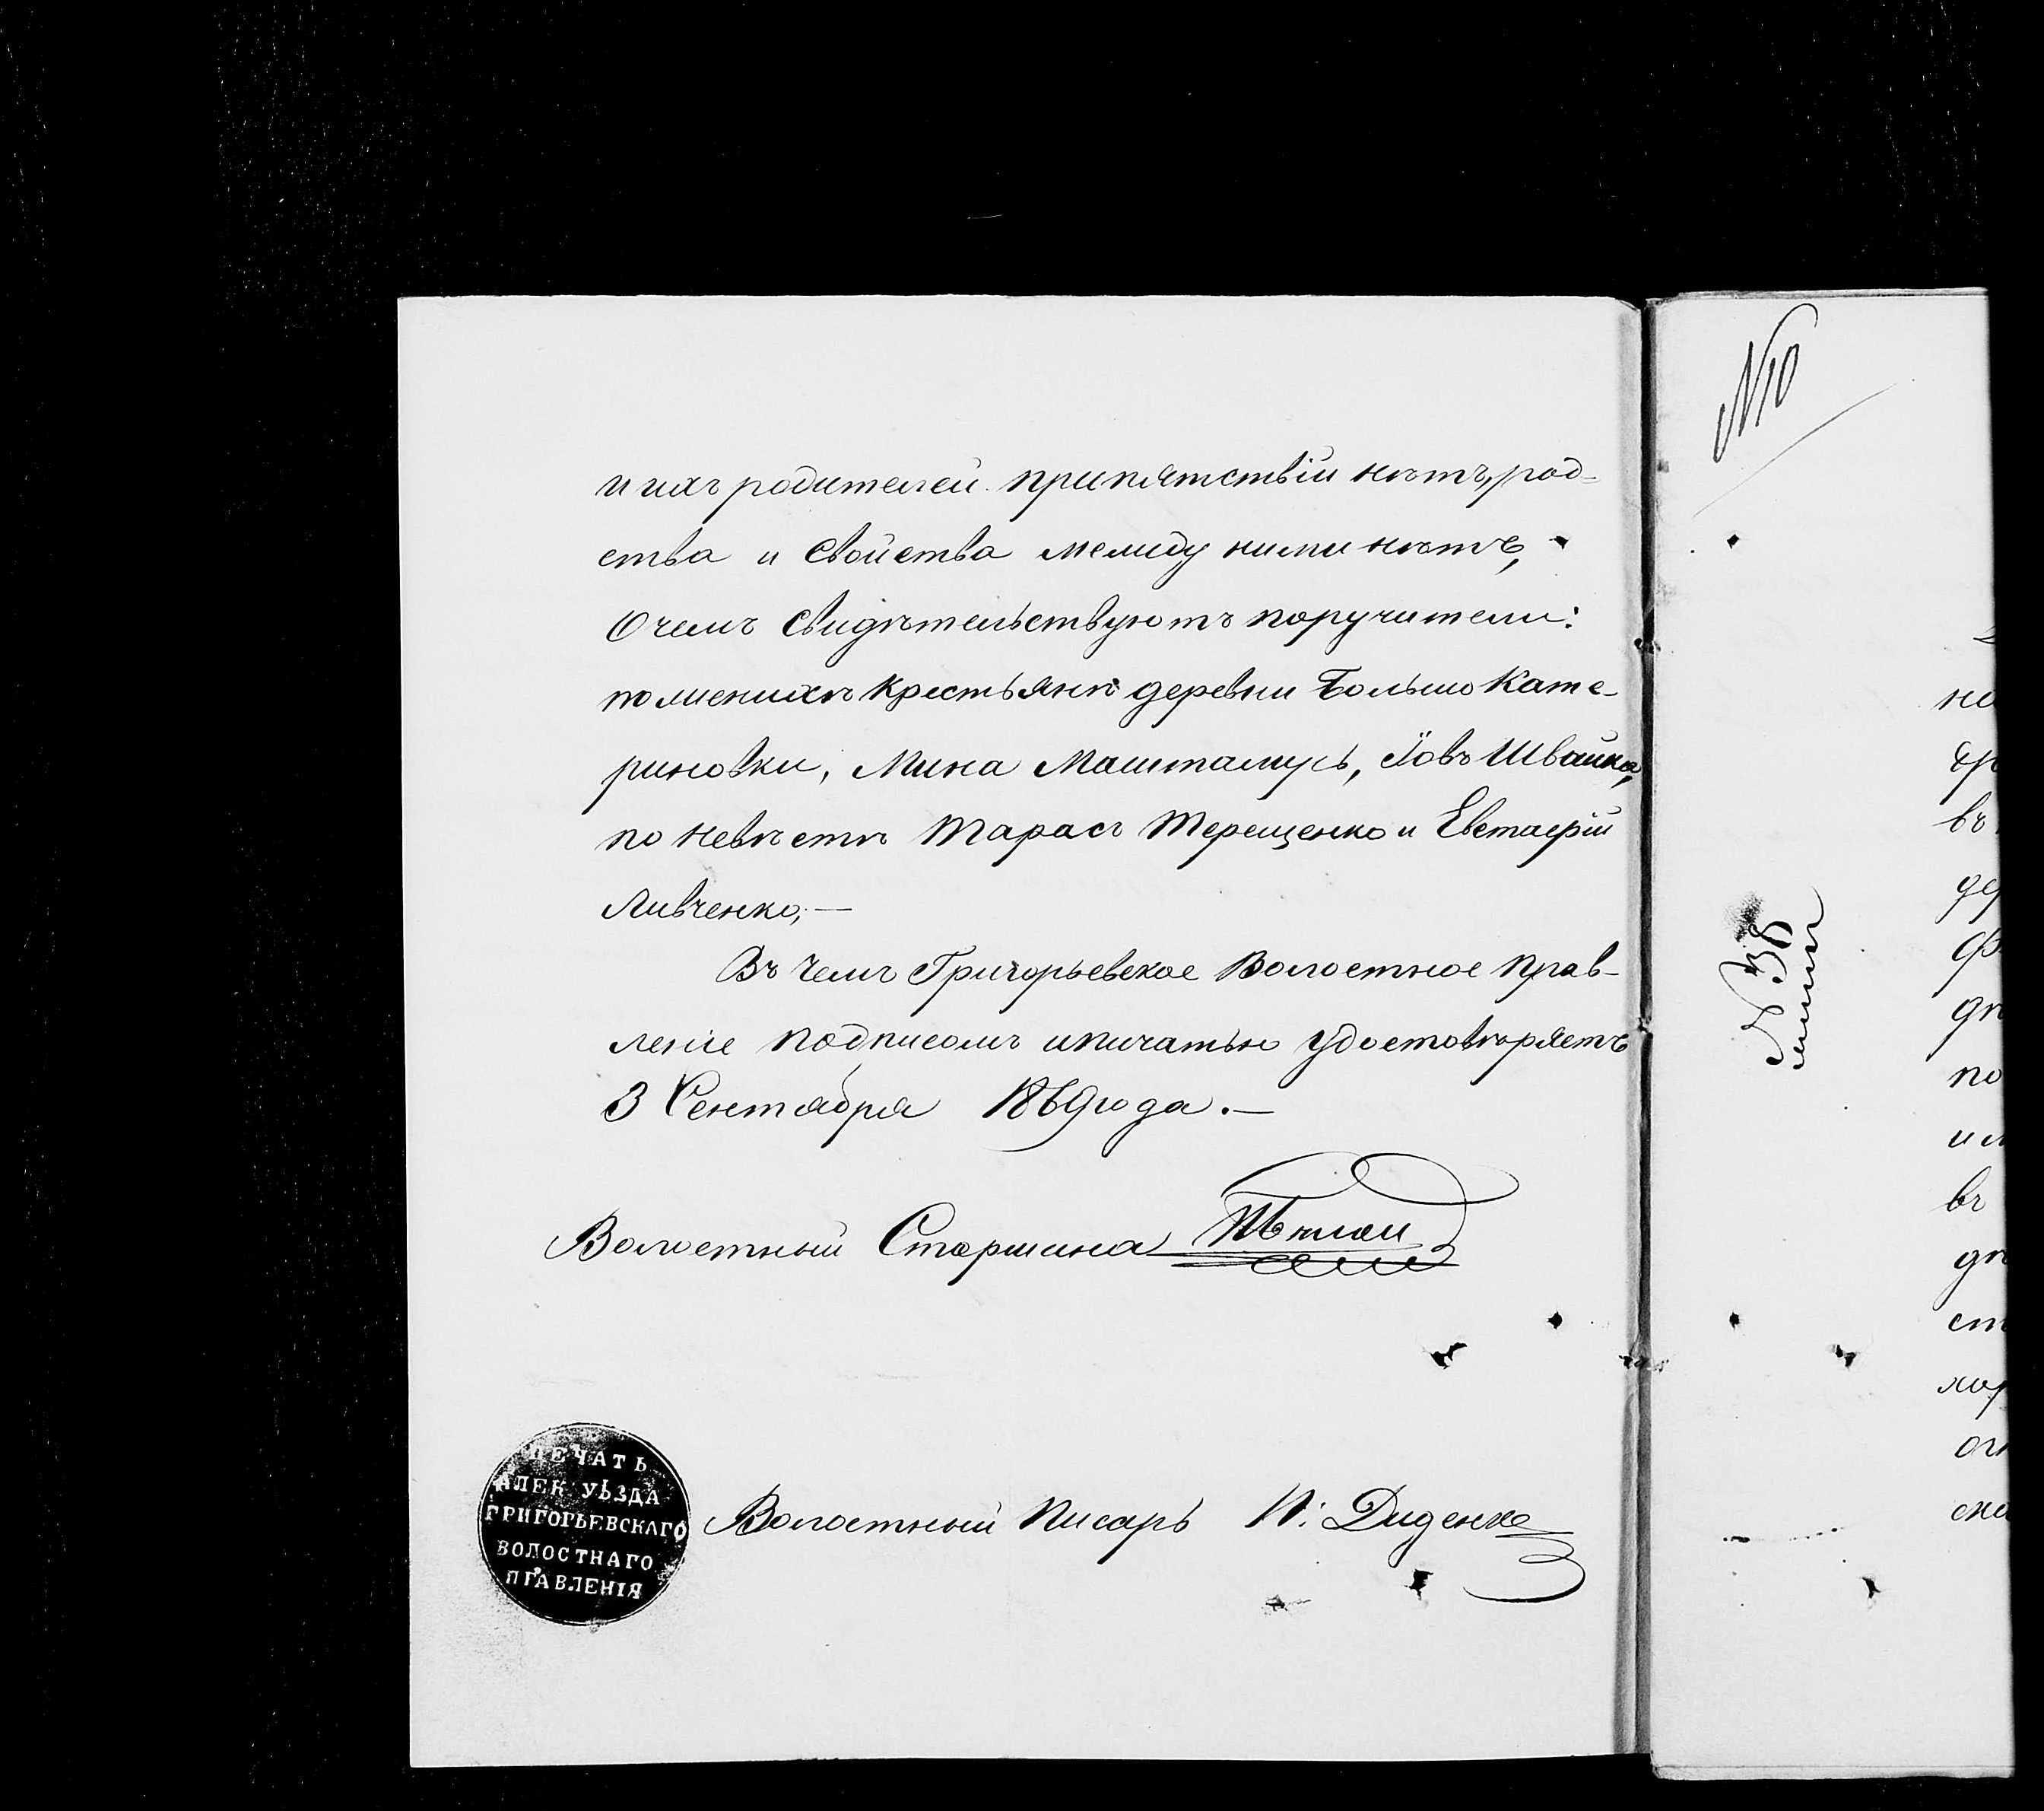 и ихъ родителей препятствій нѣтъ, род-
ства и свойства между ними нѣтъ,
О чемъ свидѣтельствуютъ поручители:
по женихѣ крестьянѣ деревни Больше Кате-
риновки, Мина Машталирь, Іовъ Швайка,
по невѣстѣ Тарасъ Терещенко и Евстафій
Ливченко, —
Въ чемъ Григорьевское Волостное Прав-
леніе подписомъ и пичатью удостовѣряетъ
3 Сентября 1869 года. —
Волостный Старшина
ПЕЧАТЬ
АЛЕК УѢЗДА
ГРИГОРЬЕВСКАГО
ВОЛОСТНАГО
ПРАВЛЕНІЯ
Волостный Писарь П: Диденко
№10
но
въ
по
въ